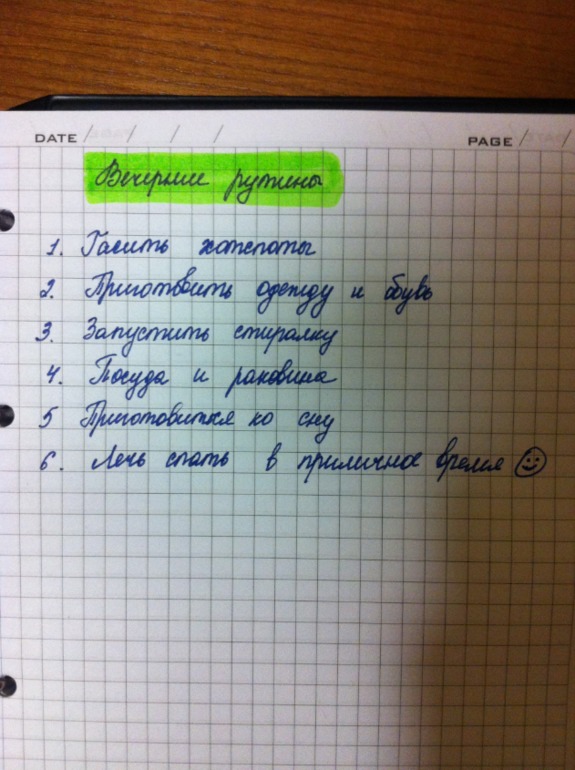 DATE / / / PAGE /
Вечерние рутины
1. Гасить хотспоты
2. Приготовить одежду и обувь
3. Запустить стиралку
4. Посуда и раковина
5 Приготовиться ко сну
6. Лечь спать в приличное время